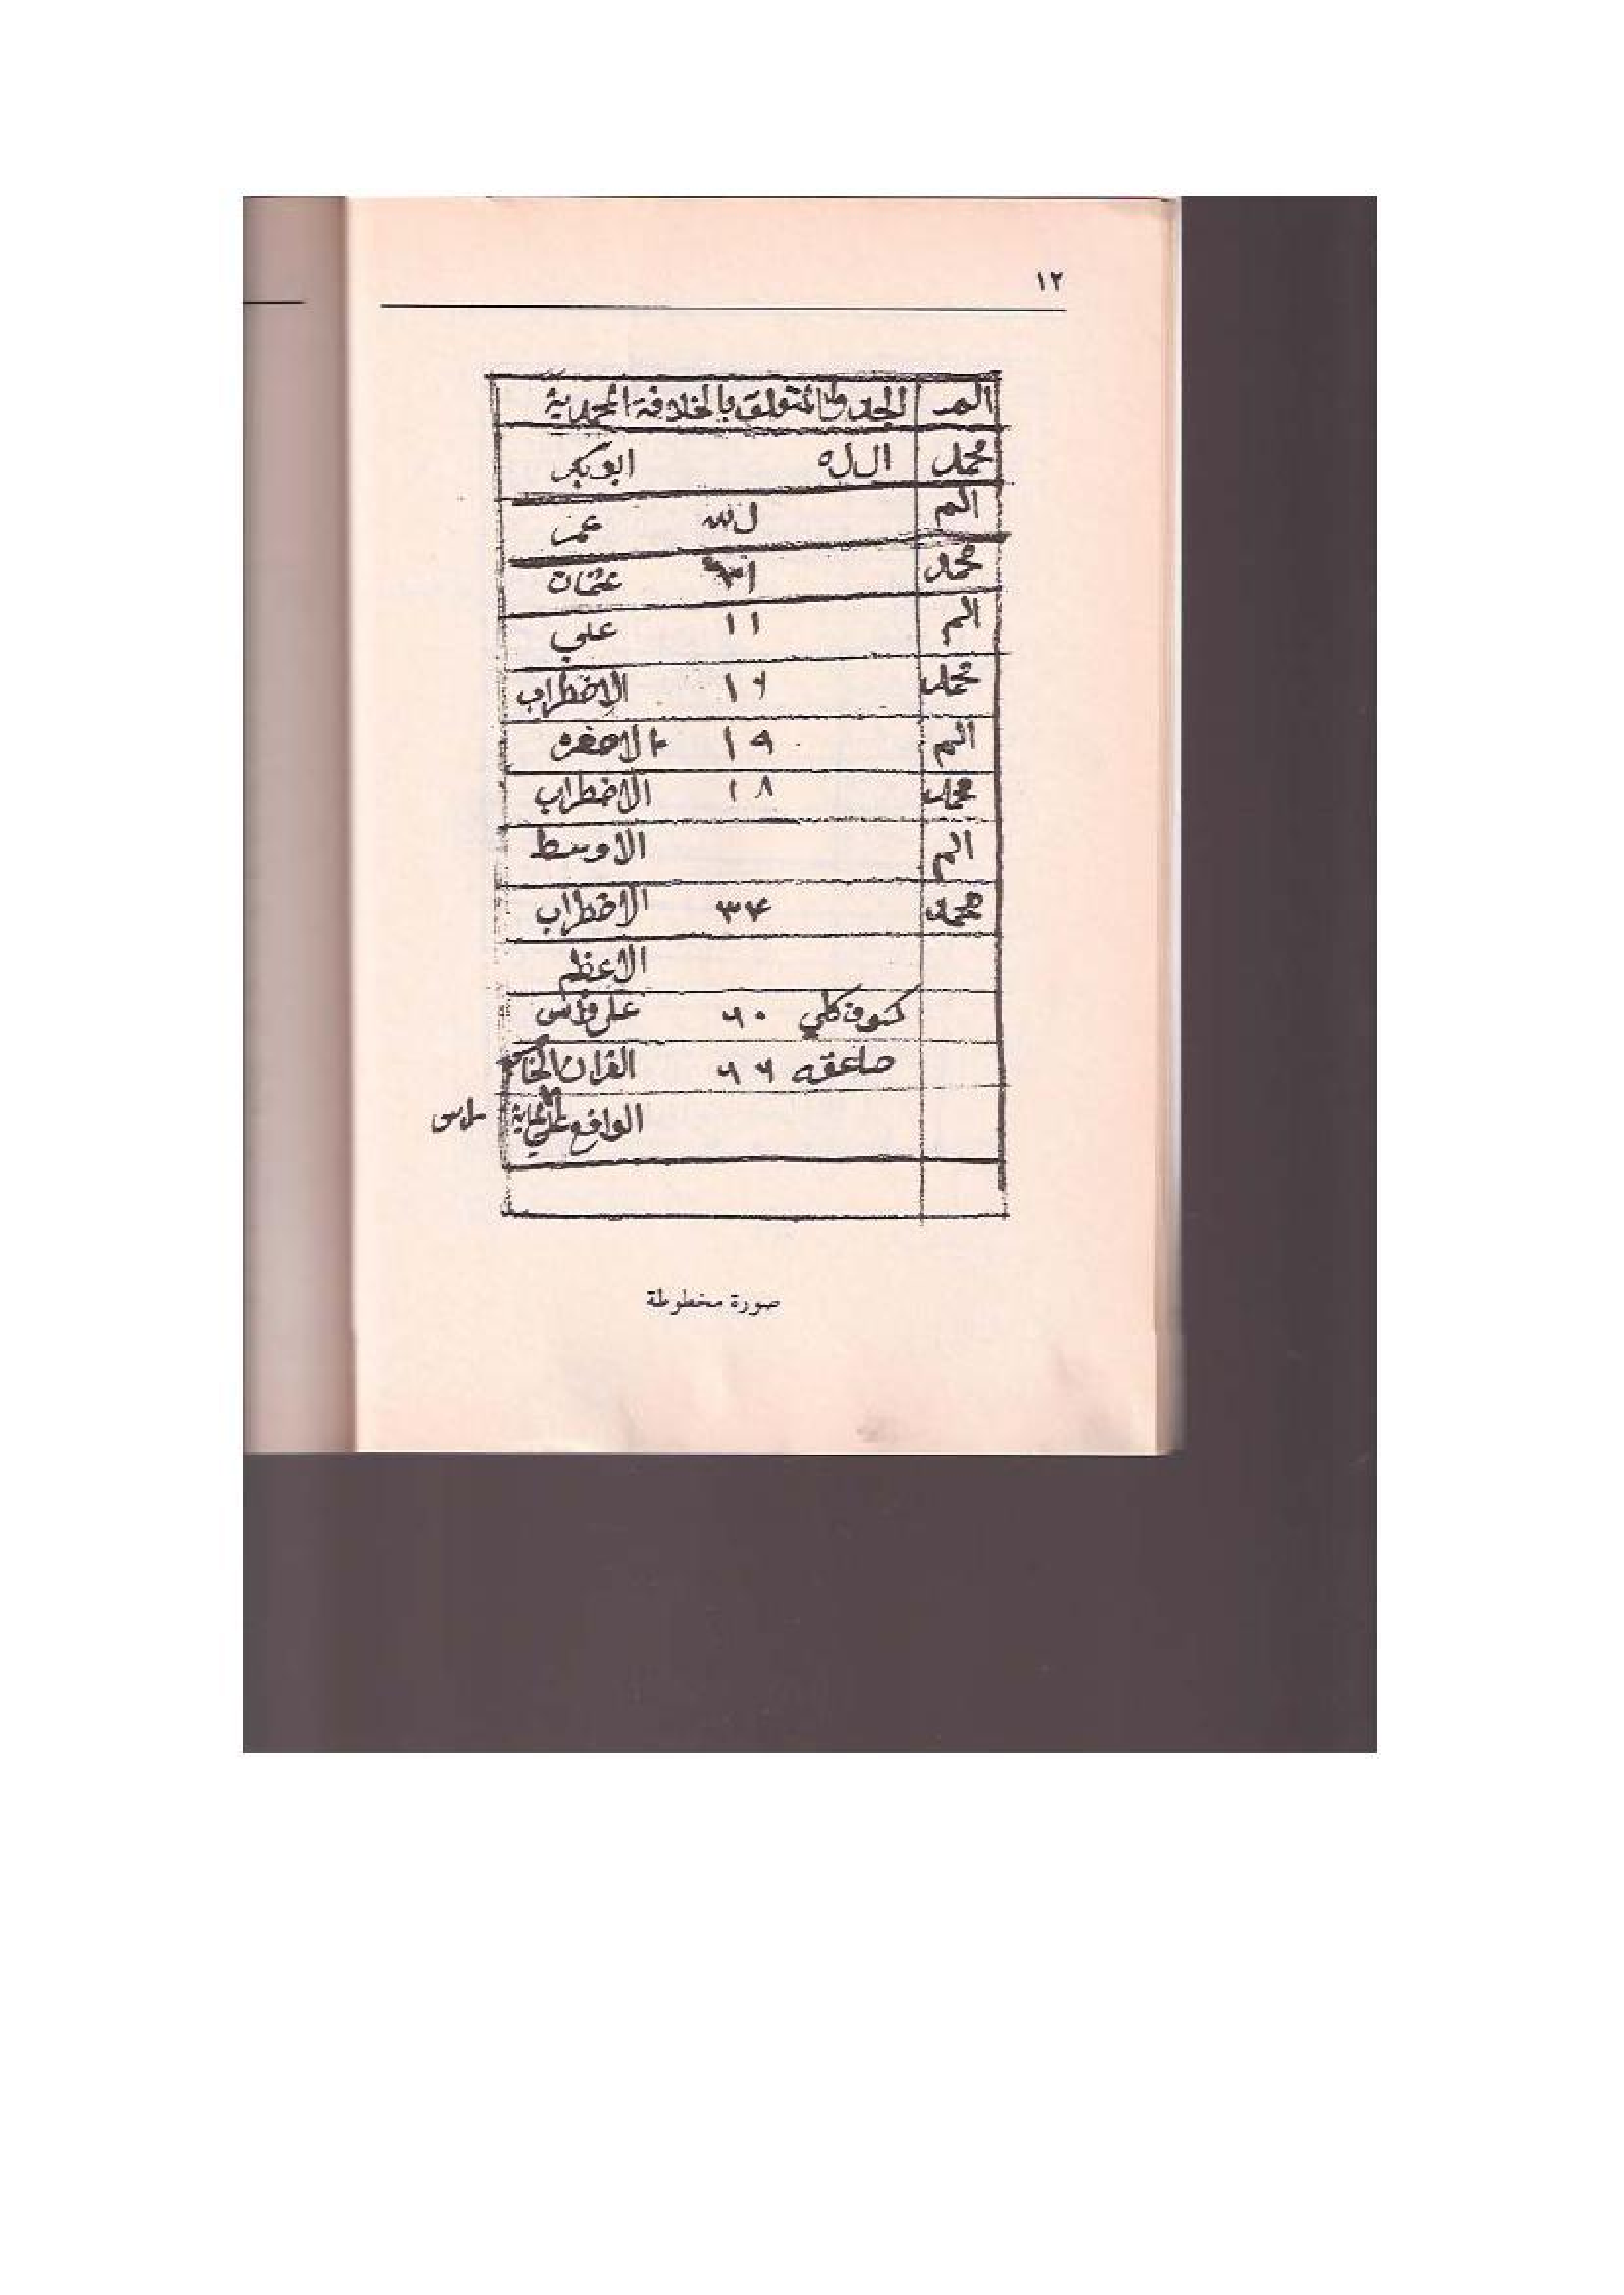 ١٢
المر الجدول المتعلق بالخلافة المحمدية
محمد ال ل ه ابو بكر
الم ل لله عمر
محمد عثمان
الم ١١ علي
محمد ١٦ الاضطراب
الم ١٩ الاصغر
محمد ١٨ الاضطراب
الم الاوسط
محمد ٣٤ الاضطراب
الاعظم
كسوف كلي ٦٠ على راس
صاعقه ٦٦ القران
الواقع
صورة مخطوطة